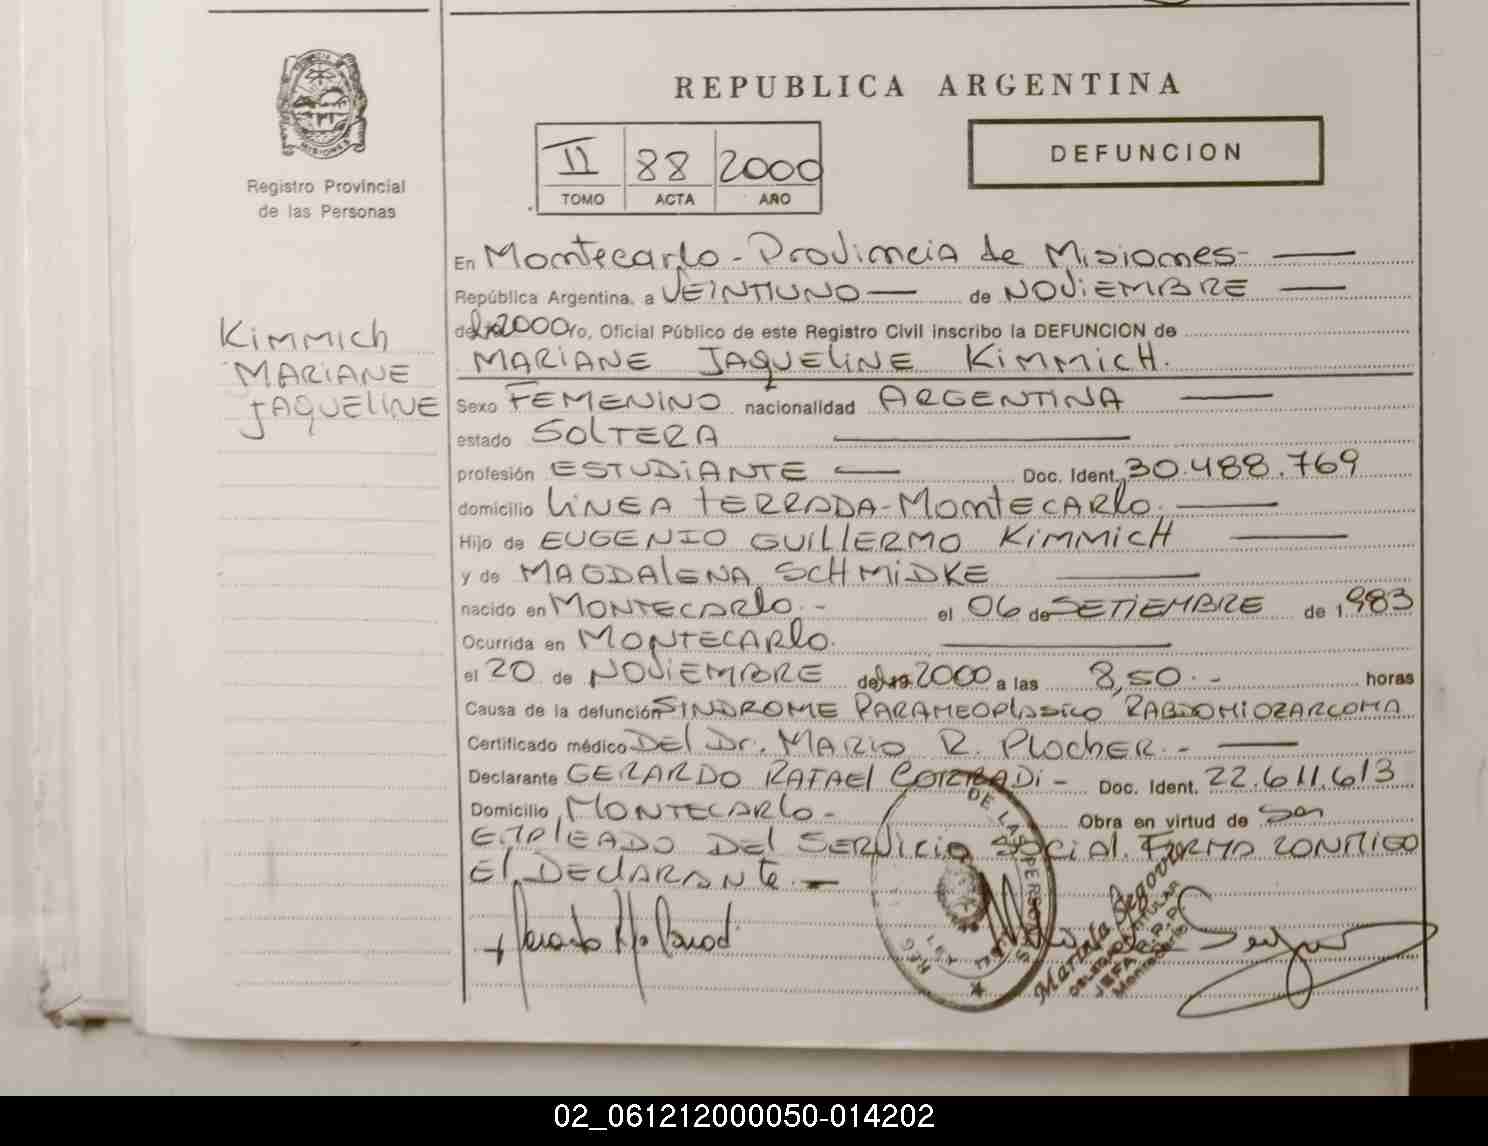 REPUBLICA ARGENTINA
PROVINCIA DE MISIONES
Registro Provincial
de las Personas
II 88 2000
TOMO ACTA AÑO
DEFUNCION
Kimmich
MARIANE
JAQUELINE
En Montecarlo - Provincia de Misiones -
República Argentina, a VEINTIUNO de NOVIEMBRE
del 2000 ro, Oficial Público de este Registro Civil inscribo la DEFUNCION de
MARIANE JAQUELINE KIMMICH.
Sexo FEMENINO nacionalidad ARGENTINA
estado SOLTERA
profesión ESTUDIANTE Doc. Ident. 30.488.769
domicilio LINEA TERRADA - MontECARLo.
Hijo de EUGENIO GUILLERMO KIMMICH
y de MAGDALENA SCHMIDKE
nacido en MONTECARLO. - el 06 de SETIEMBRE de 1983
Ocurrida en MONTECARLO.
el 20 de NOVIEMBRE del 2000 a las 8,50. - horas
Causa de la defunción SINDROME PARAMEOPLASICO RABDOMIOZARCOMA
Certificado médico DEL Dr. MARIO R. PLOCHER. -
Declarante GERARDO RAFAEL CORRADI - Doc. Ident. 22.611.613
Domicilio MONTECARLO -
Obra en virtud de SER
EMPLEADO DEL SERVICIO SOCIAL. FIRMA CONMIGO
EL DECLARANTE. -
DE LAS PERSONAS
REG
Marina Segovia
DELEGADA TITULAR
JEFA R.P.P.
Montecarlo
02_061212000050-014202